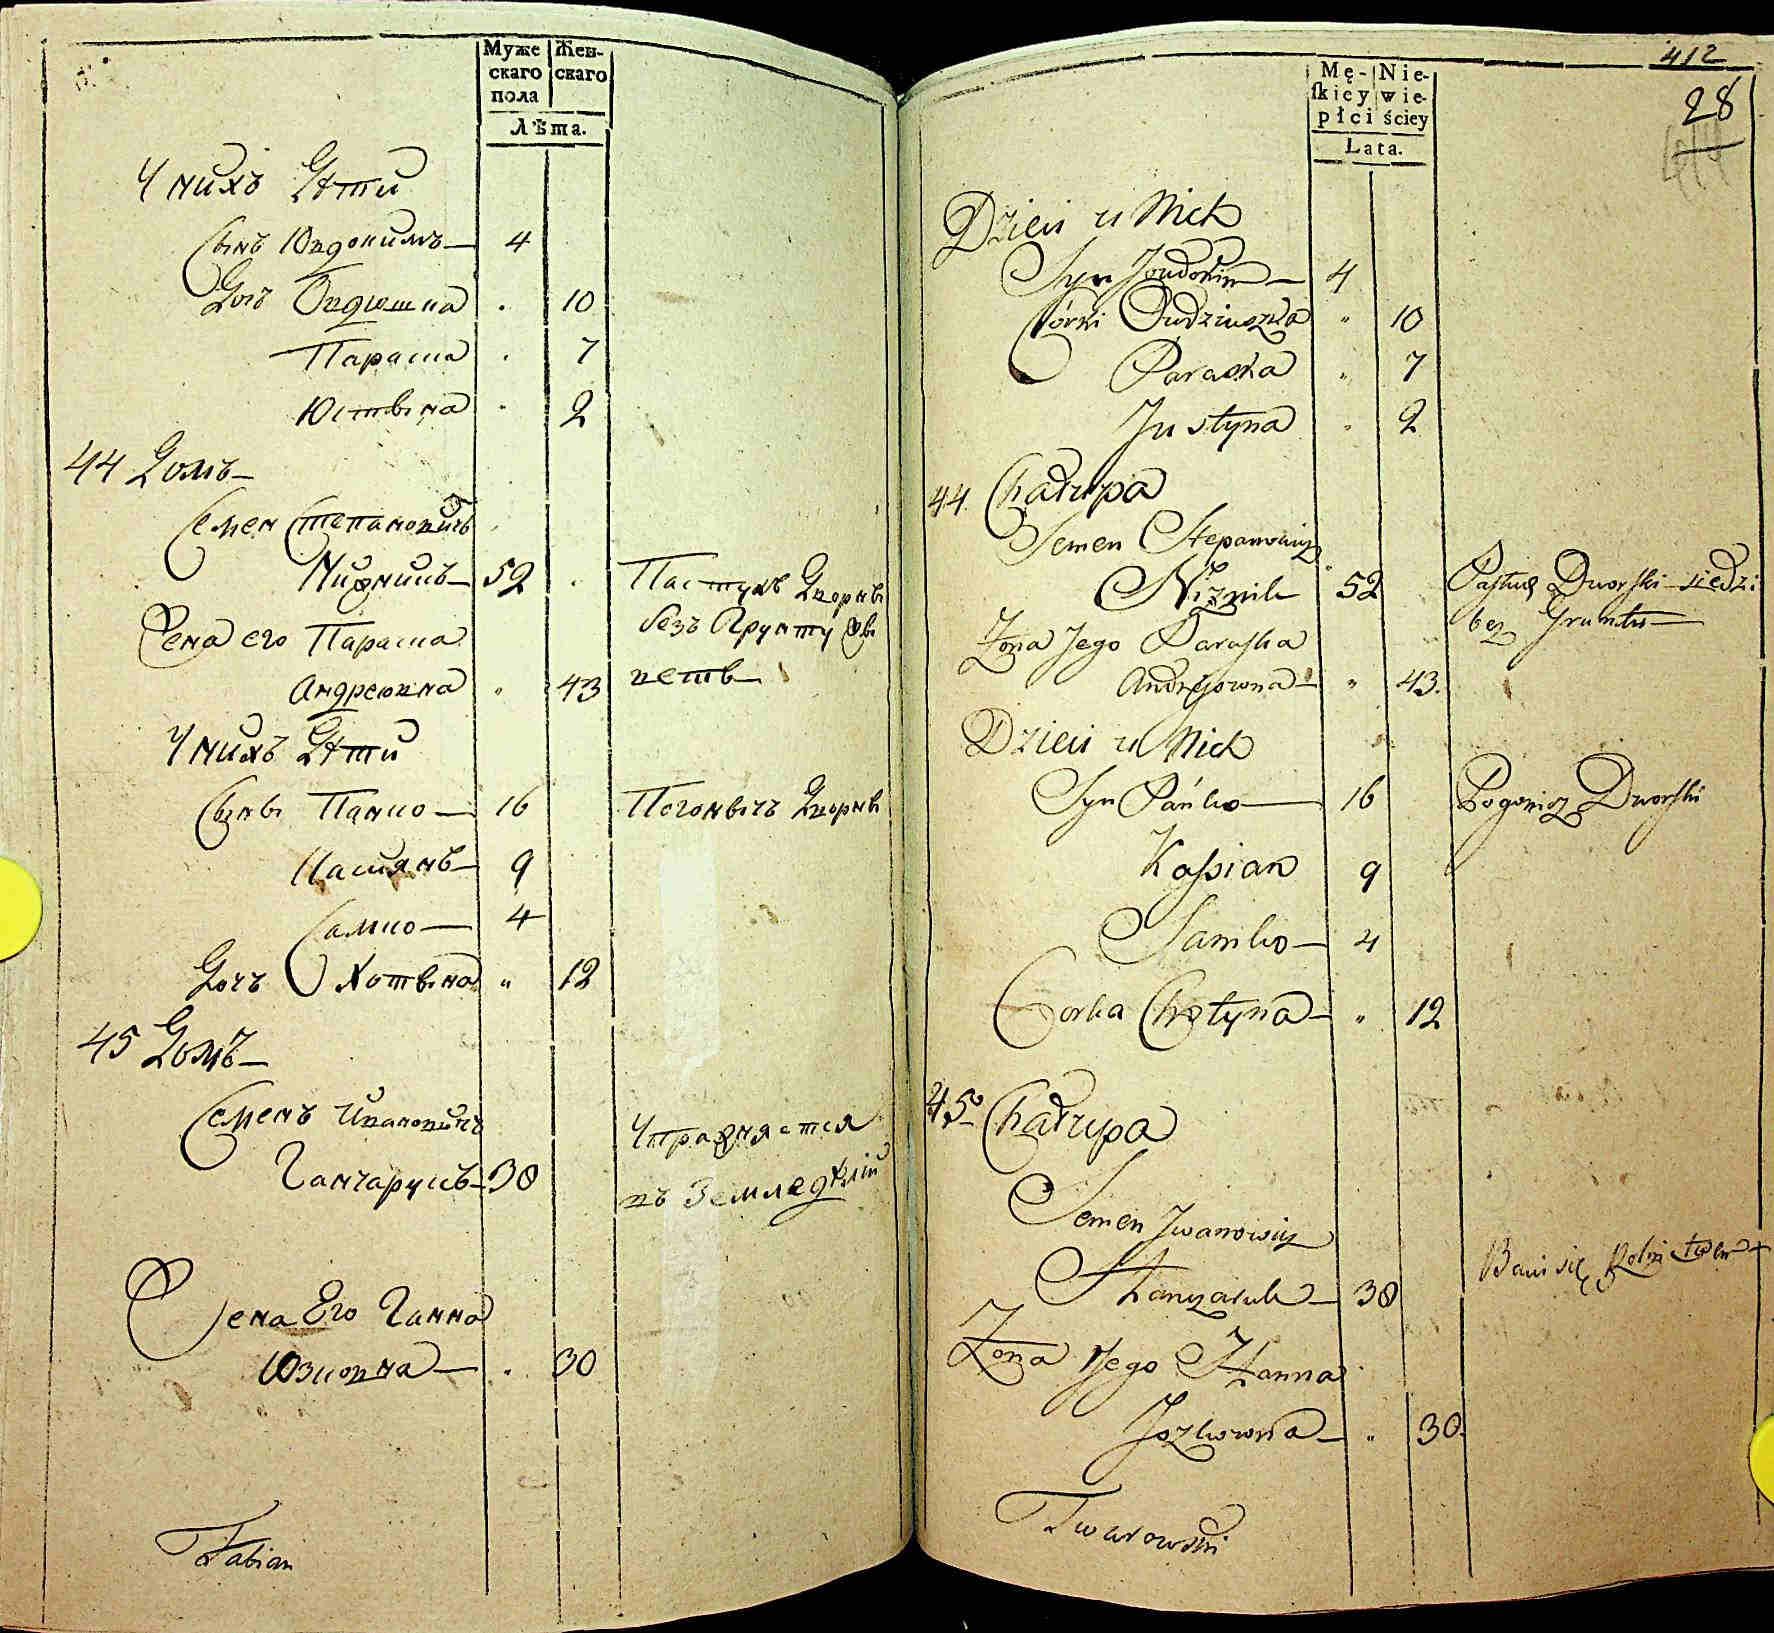 Муже Жен-
скаго скаго
пола
Лѣта.
У нихъ Дѣти
Сынъ Ювдокимъ 4
Дочь Овдюшка . 10
Параска . 7
Юстына . 2
44 Домъ
Семен Степановичъ
Нижникъ 52 .
Пастухъ Дворны
безъ Грунту жы
веть
Жена его Параска
Андреювна " 43
У нихъ Дѣти
Сыны Панко 16 Погонычъ Дворны
Касиянъ 9
Самко 4
Дочъ Хотына " 12
45 Домъ
Семенъ Ивановичъ
Ганчарукъ 38
Упражняется
въ Земледѣлїи
Жена Его Ганна
Юзковна . 30
Fabian
412
28
Mę- Nie-
ſkiey wie-
płci ściey
Lata.
Dzieci u Nich
Syn Joudokim 4
Córki Oudziuszka " 10
Paraska " 7
Justyna . 2
44 Chałupa
Semen Stepanowicz
Niznik 52 Pastuch Dworski siedzi
bez Gruntu
Zona Jego Paraska
Andrejowna " 43.
Dzieci u Nich
Syn Pańko 16 Pogonicz Dworski
Kassian 9
Samko 4
Corka Chotyna " 12
45 Chałupa
Semen Jwanowicz
Hanczaruk 38 Bawi się Rolnictwem
Zona Jego Hanna
Jozkowna " 30.
Twarowski